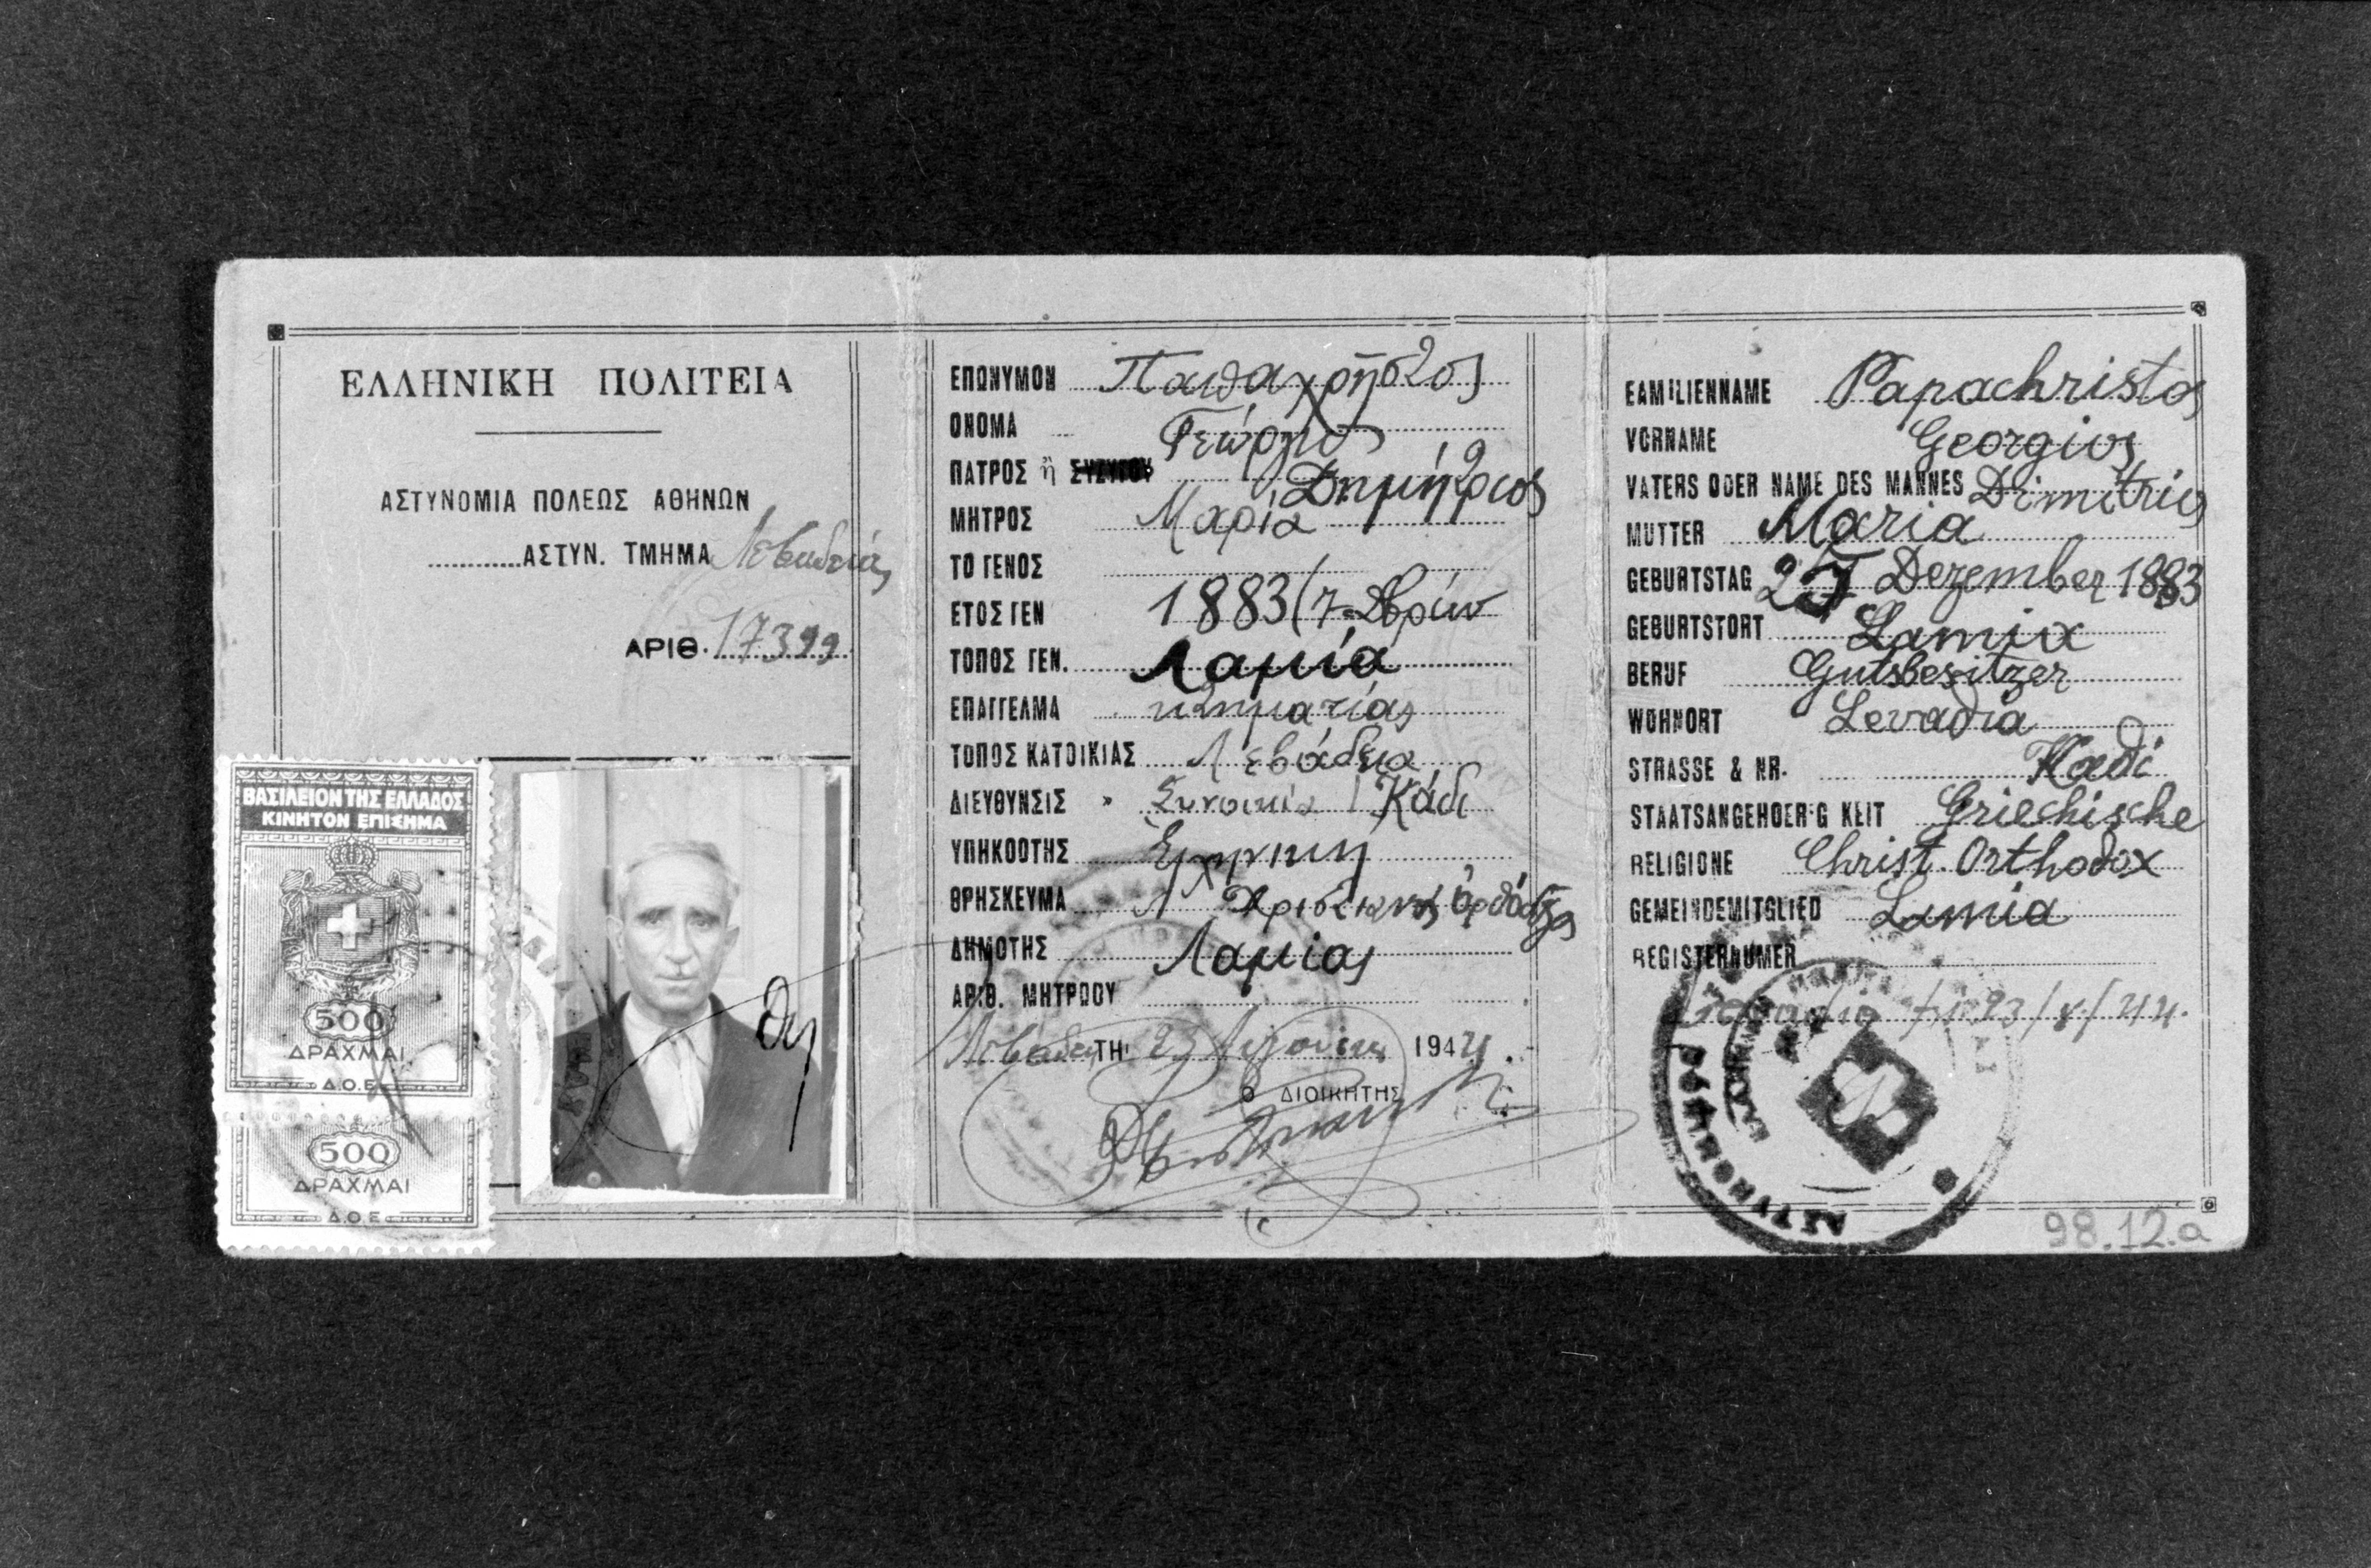 ΕΛΛΗΝΙΚΗ ΠΟΛΙΤΕΙΑ
ΑΣΤΥΝΟΜΙΑ ΠΟΛΕΩΣ ΑΘΗΝΩΝ
ΑΣΤΥΝ. ΤΜΗΜΑ Λεβαδείας
ΑΡΙΘ. 17399
ΒΑΣΙΛΕΙΟΝ ΤΗΣ ΕΛΛΑΔΟΣ
ΚΙΝΗΤΟΝ ΕΠΙΣΗΜΑ
500
ΔΡΑΧΜΑΙ
Δ.Ο.Ε.
500
ΔΡΑΧΜΑΙ
Δ.Ο.Ε.
ΕΠΩΝΥΜΟΝ Παπαχρῆστος
ΟΝΟΜΑ Γεώργιος
ΠΑΤΡΟΣ ἢ ΣΥΖΥΓΟΥ Δημήτριος
ΜΗΤΡΟΣ Μαρία
ΤΟ ΓΕΝΟΣ
ΕΤΟΣ ΓΕΝ 1883
ΤΟΠΟΣ ΓΕΝ. Λαμία
ΕΠΑΓΓΕΛΜΑ κτηματίας
ΤΟΠΟΣ ΚΑΤΟΙΚΙΑΣ Λεβάδεια
ΔΙΕΥΘΥΝΣΙΣ » Συνοικία Κάδι
ΥΠΗΚΟΟΤΗΣ Ἑλληνική
ΘΡΗΣΚΕΥΜΑ Χριστιανὸς ὀρθόδοξος
ΔΗΜΟΤΗΣ Λαμίας
ΑΡΙΘ. ΜΗΤΡΩΟΥ
Λεβάδεια ΤΗ 23 1944
Ο ΔΙΟΙΚΗΤΗΣ
FAMILIENNAME Papachristos
VORNAME Georgios
VATERS ODER NAME DES MANNES Dimitrios
MUTTER Maria
GEBURTSTAG 25 Dezember 1883
GEBURTSTORT Lamia
BERUF Gutsbesitzer
WOHNORT Levadia
STRASSE & NR. Kadi
STAATSANGEHOERIG KEIT Griechische
RELIGIONE Christ. Orthodox
GEMEINDEMITGLIED Lamia
REGISTERNUMER
23/8/44.
98.12.a